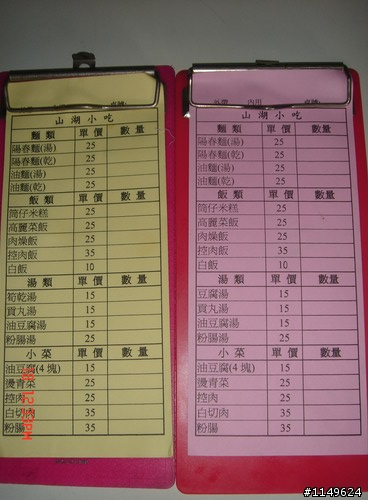 山湖小吃
麵類 單價 數量
陽春麵(湯) 25
陽春麵(乾) 25
油麵(湯) 25
油麵(乾) 25
飯類 單價 數量
筒仔米糕 25
高麗菜飯 25
肉燥飯 25
控肉飯 35
白飯 10
湯類 單價 數量
筍乾湯 15
貢丸湯 15
油豆腐湯 15
粉腸湯 25
小菜 單價 數量
油豆腐(4塊) 15
燙青菜 25
控肉 25
白切肉 35
粉腸 35
外帶 內用
山湖小吃
麵類 單價 數量
陽春麵(湯) 25
陽春麵(乾) 25
油麵(湯) 25
油麵(乾) 25
飯類 單價 數量
筒仔米糕 25
高麗菜飯 25
肉燥飯 25
控肉飯 35
白飯 10
湯類 單價 數量
豆腐湯 15
貢丸湯 15
油豆腐湯 15
粉腸湯 25
小菜 單價 數量
油豆腐(4塊) 15
燙青菜 25
控肉 25
白切肉 35
粉腸 35
#1149624